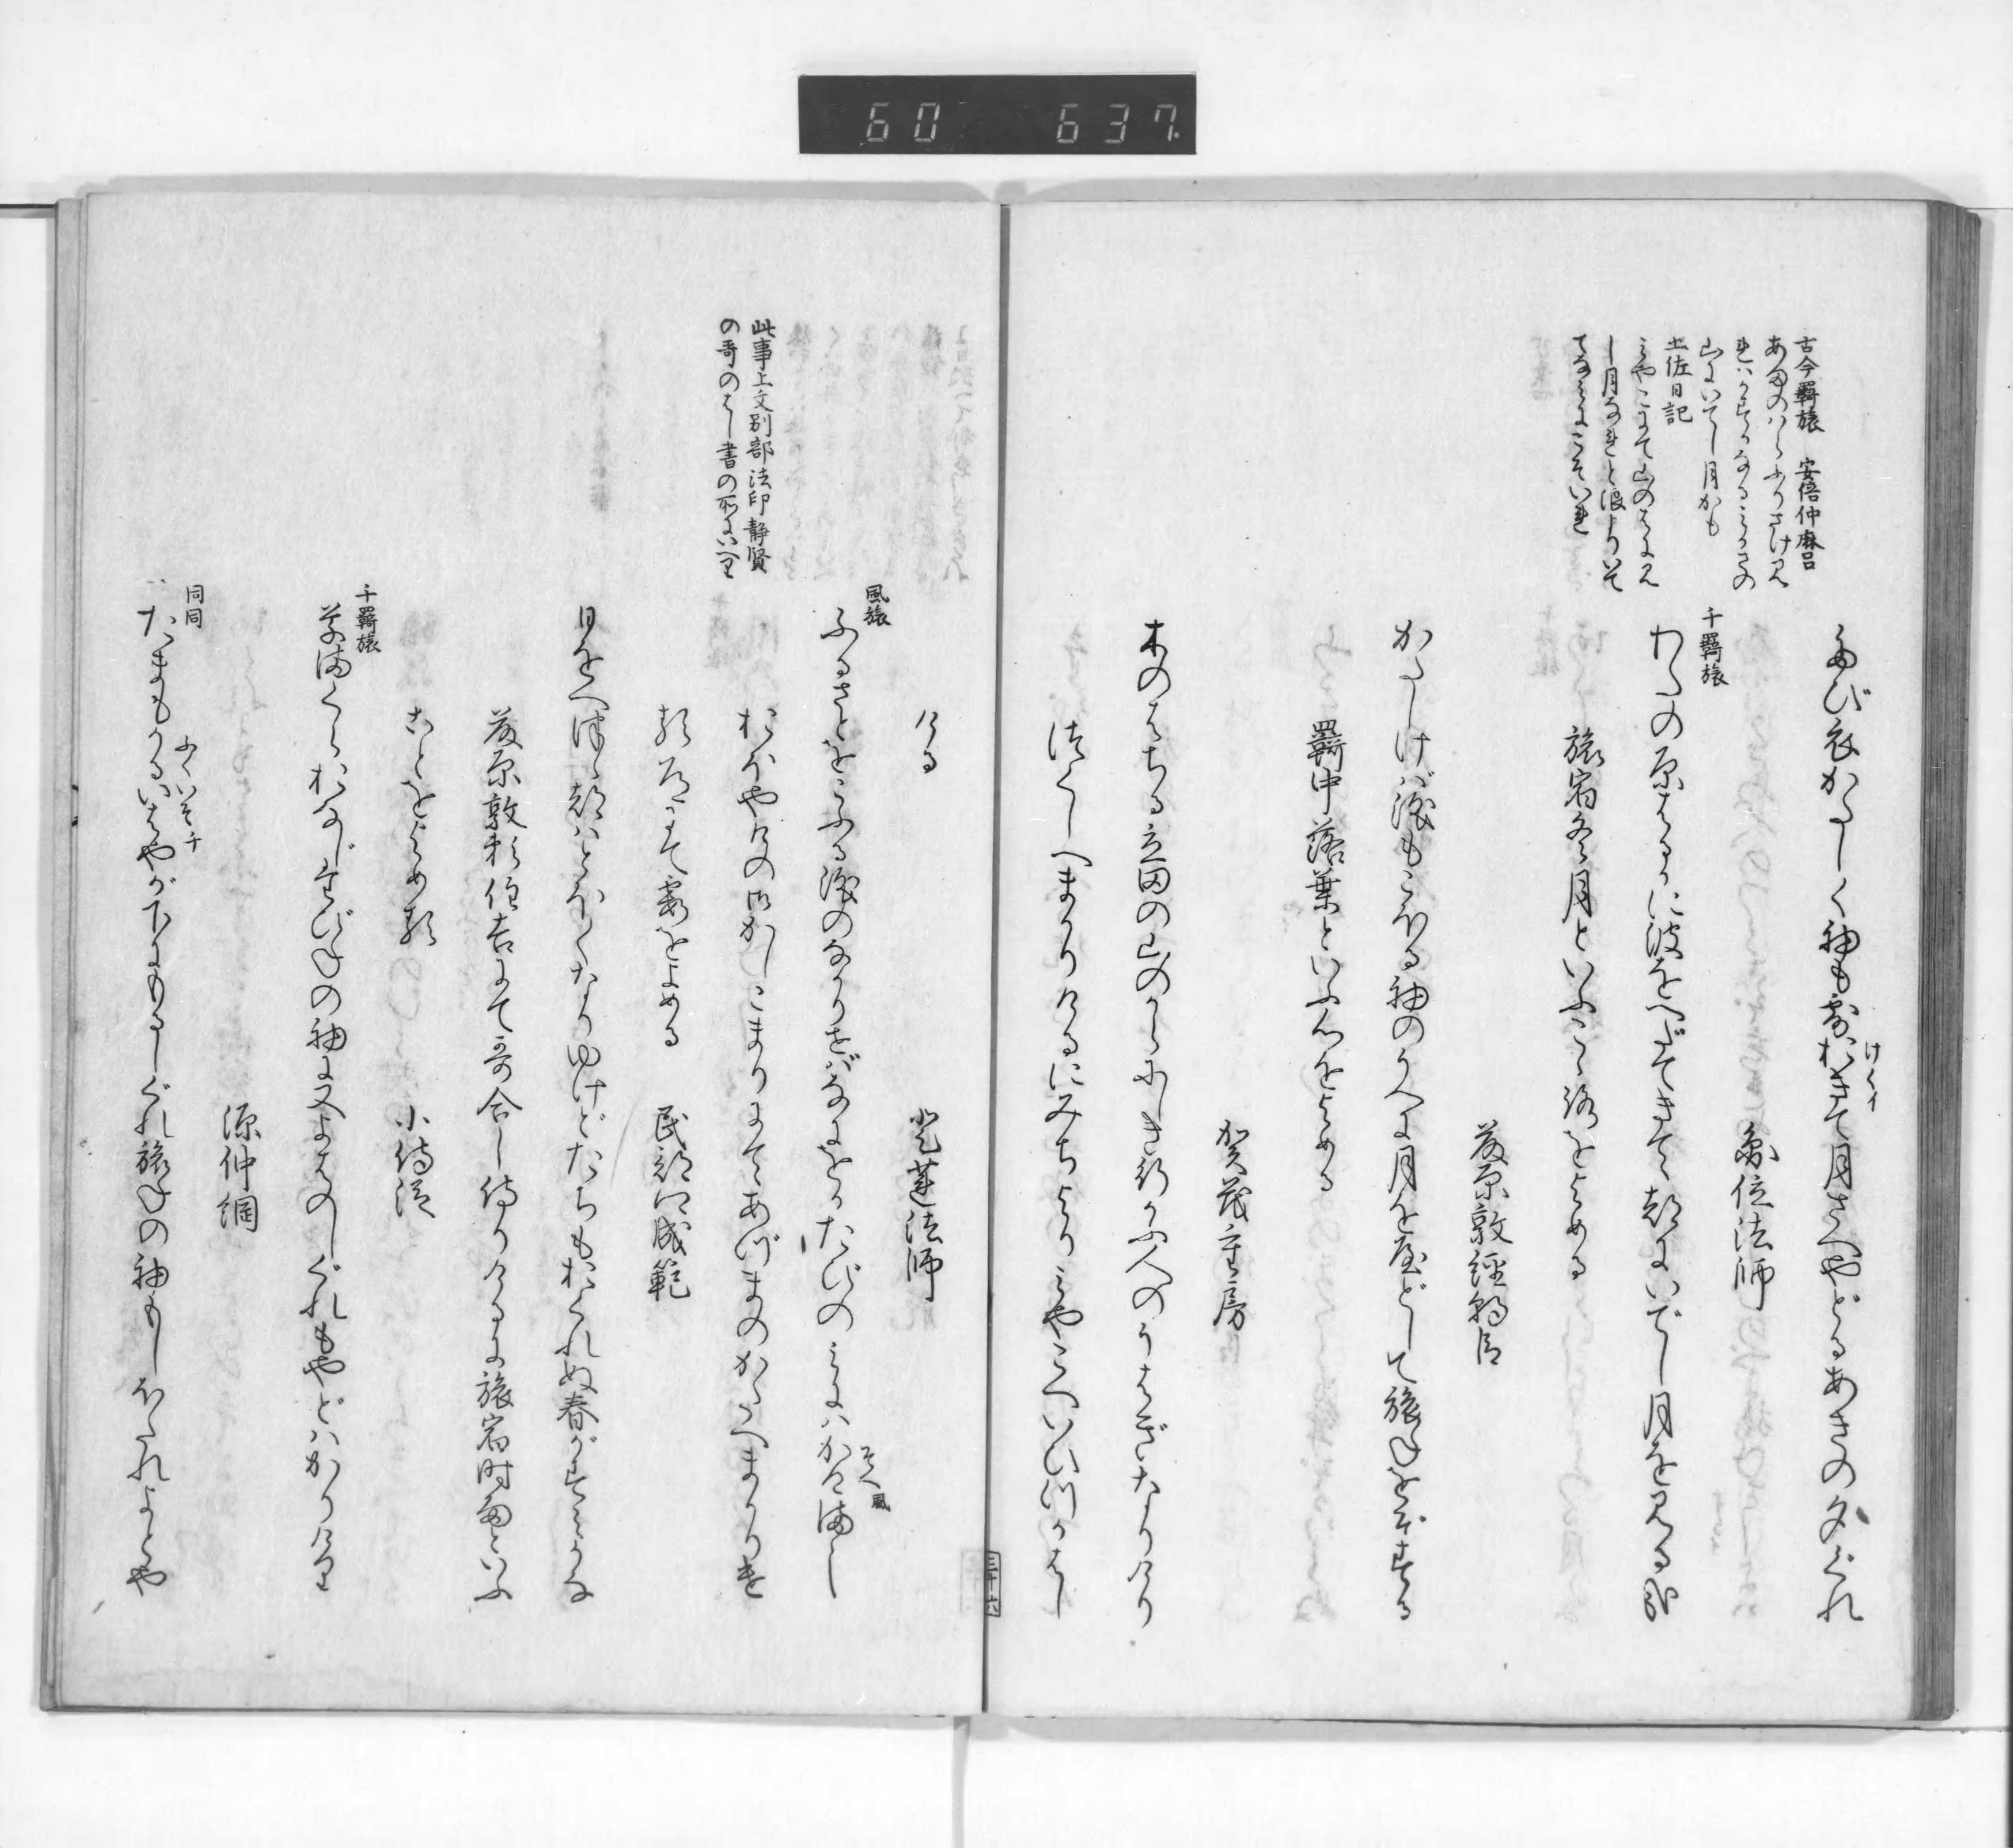 60 637
古今羇旅 安倍仲麻呂
あまのはらふりさけみ
れはかすかなるみかさの
山にいてし月かも
土佐日記
みやこにて山のはにみ
し月なれと浪よりいて
てなみにこそいれ
たび衣かたしく袖も露おきて月さへやどるあきの夕ぐれ
けくイ
円位法師
千羇旅
わたの原はるかに波をへだてきて都にいでし月を見る哉
旅宿冬月といふこゝろをよめる
藤原敦経朝臣
かたしけば涙もこほる袖のうへに月を屋どして旅ねをぞする
羇中落葉といふ心をよめる
賀茂重房
木のはちる立田の山のからにしき行かふ人のうはぎなりけり
つくしへまかりけるにみちよりみやこへいひつかはし
三十六
ける
寂蓮法師
風旅
ふるさとをこふる涙のなかりせばなにをかたびのみにはかへまし
そへ風
おほやけの御かしこまりにてあづまのかたへまかりけ
此事上文別部法印静賢
の哥のはし書の所にいへり
る道にて霞をよめる 民部卿成範
日をへつゝ都はとほくなりゆけどたちもおくれぬ春がすみかな
藤原敦頼住吉にて哥合し侍りけるに旅宿時雨といふ
ことをよめる
小侍従
千羇旅
草まくらおなじたびねの袖に又よはのしぐれもやどはかりけり
源仲綱
同同
たまもかるいほやが下にもるしぐれ旅ねの袖もしほたれよとや
ふくいそ千